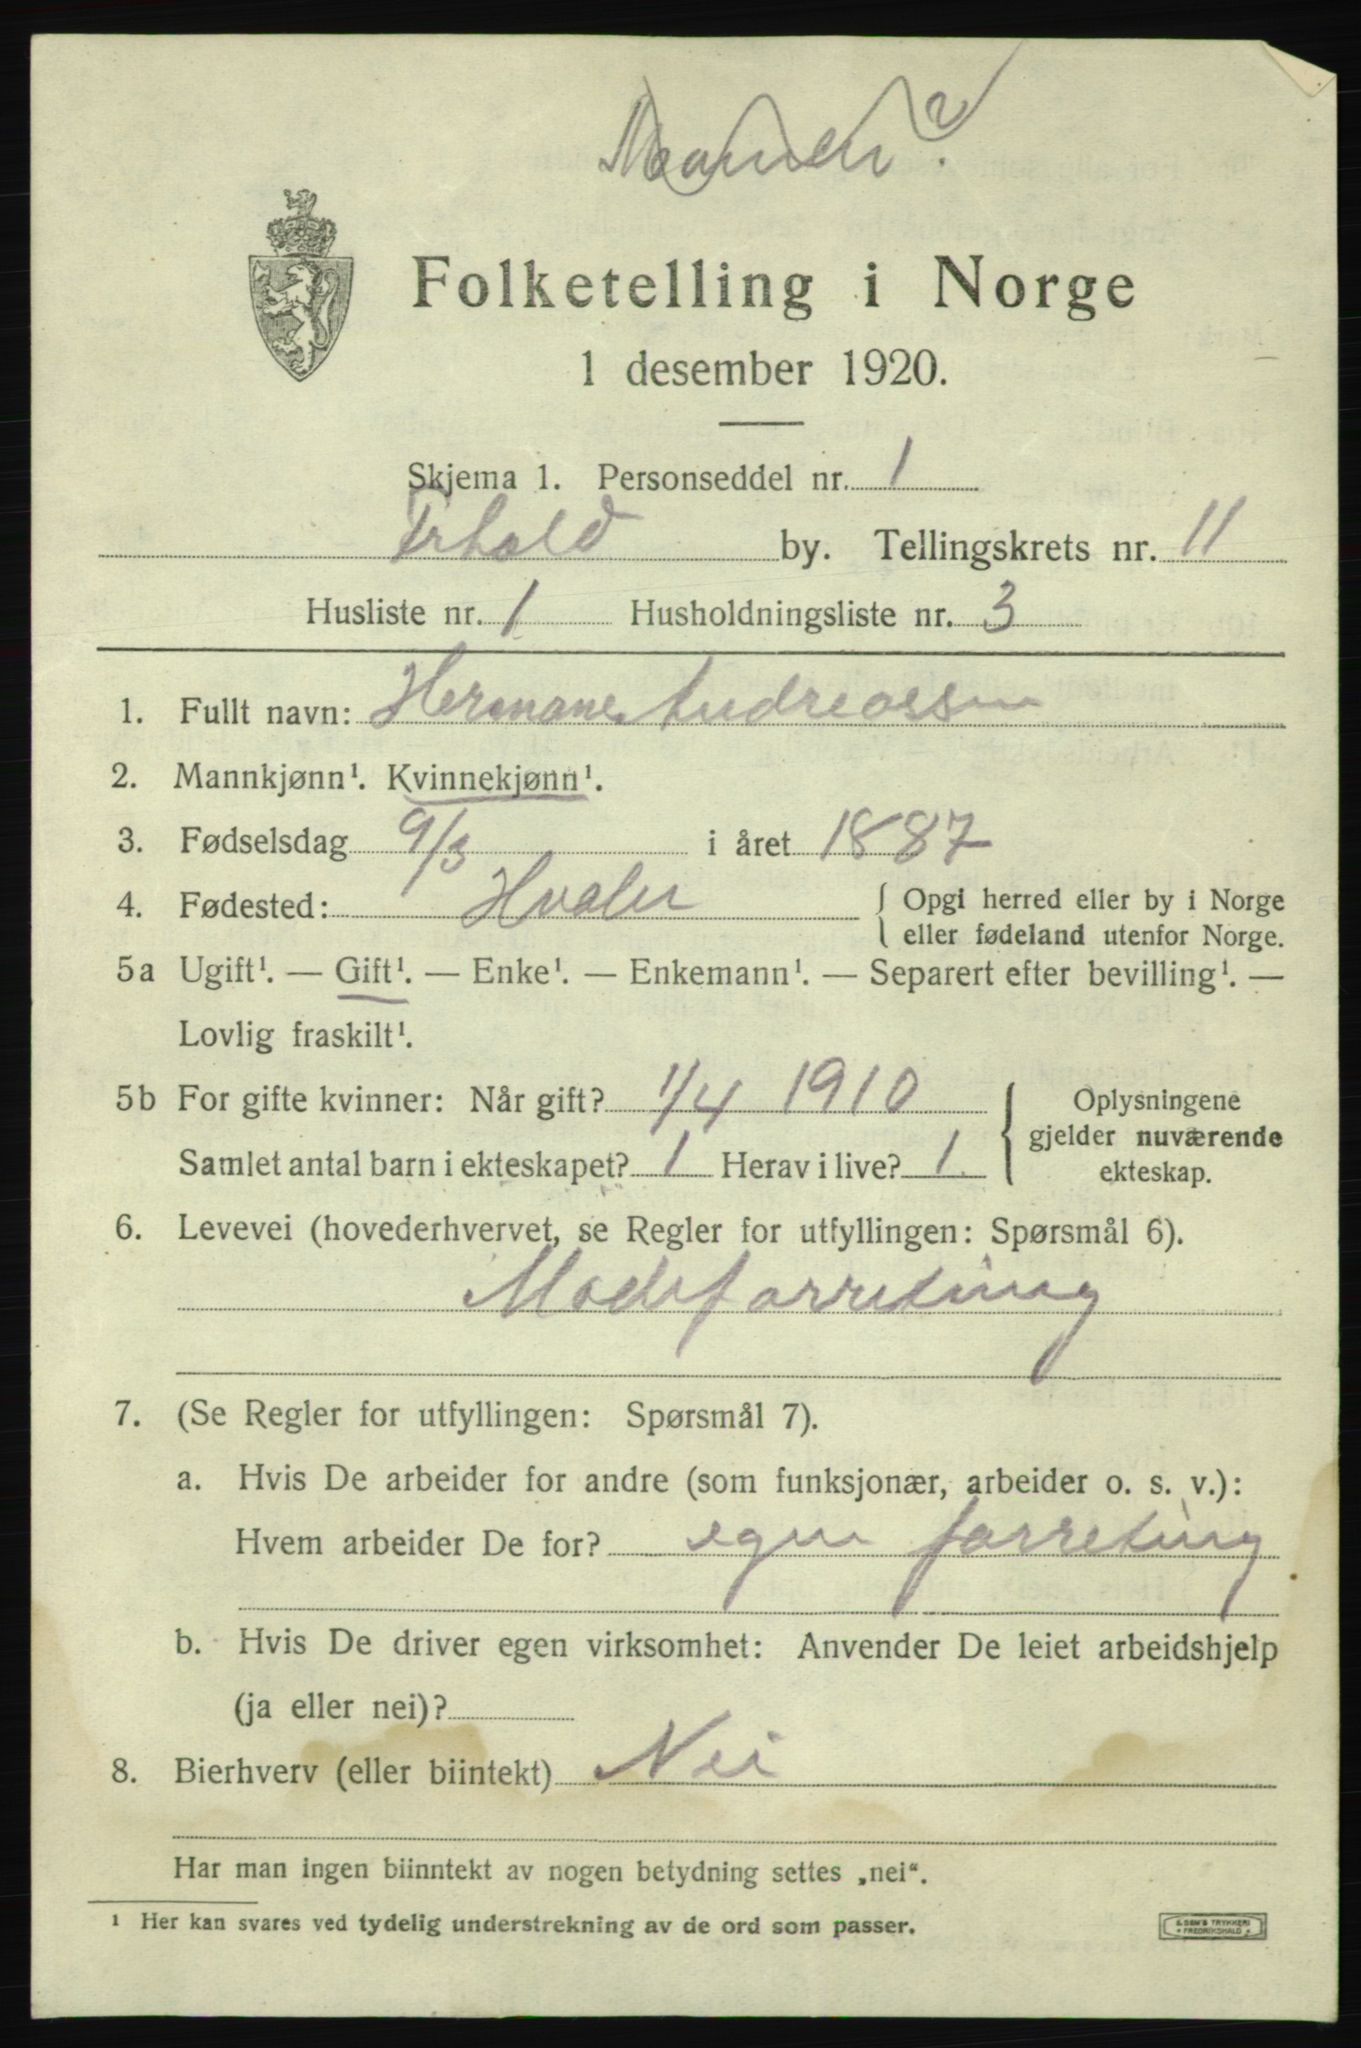 Manden?
Folketelling i Norge
1 desember 1920.
Skjema 1. Personseddel nr. 1
Frhald by. Tellingskrets nr. 11
Husliste nr. 1 Husholdningsliste nr. 3
1. Fullt navn: Hermane Andreassen
2. Mannkjønn¹. Kvinnekjønn¹.
3. Fødselsdag 9/3 i året 1887
4. Fødested: Hvaler { Opgi herred eller by i Norge
eller fødeland utenfor Norge.
5a Ugift¹. — Gift¹. — Enke¹. — Enkemann¹. — Separert efter bevilling¹. —
Lovlig fraskilt¹.
5b For gifte kvinner: Når gift? 1/4 1910 { Oplysningene
gjelder nuværende
Samlet antal barn i ekteskapet? 1 Herav i live? 1.
ekteskap.
6. Levevei (hovederhvervet, se Regler for utfyllingen: Spørsmål 6).
Modeforretning
7. (Se Regler for utfyllingen: Spørsmål 7).
a. Hvis De arbeider for andre (som funksjonær, arbeider o. s. v.):
Hvem arbeider De for? egen forretning
b. Hvis De driver egen virksomhet: Anvender De leiet arbeidshjelp
(ja eller nei)?
8. Bierhverv (eller biintekt) Nei
Har man ingen biinntekt av nogen betydning settes „nei“.
¹ Her kan svares ved tydelig understrekning av de ord som passer.
E. SEM'S TRYKKERI
FREDRIKSHALD